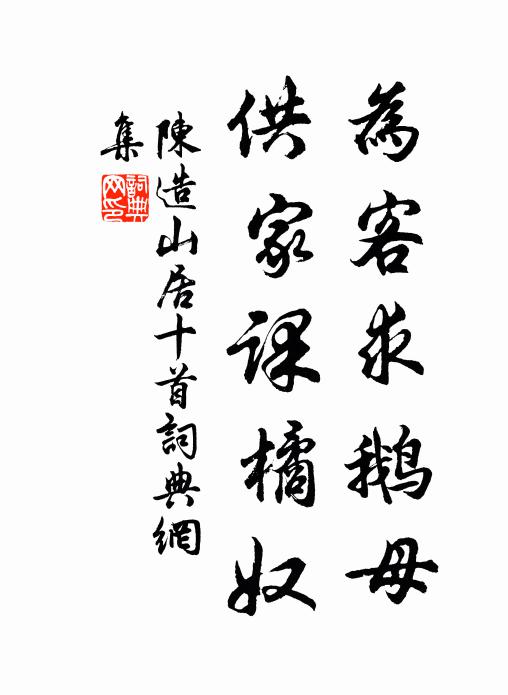 為客求鵝母
供家課橘奴
陳造山居十首詞典網
集
詞典
网印